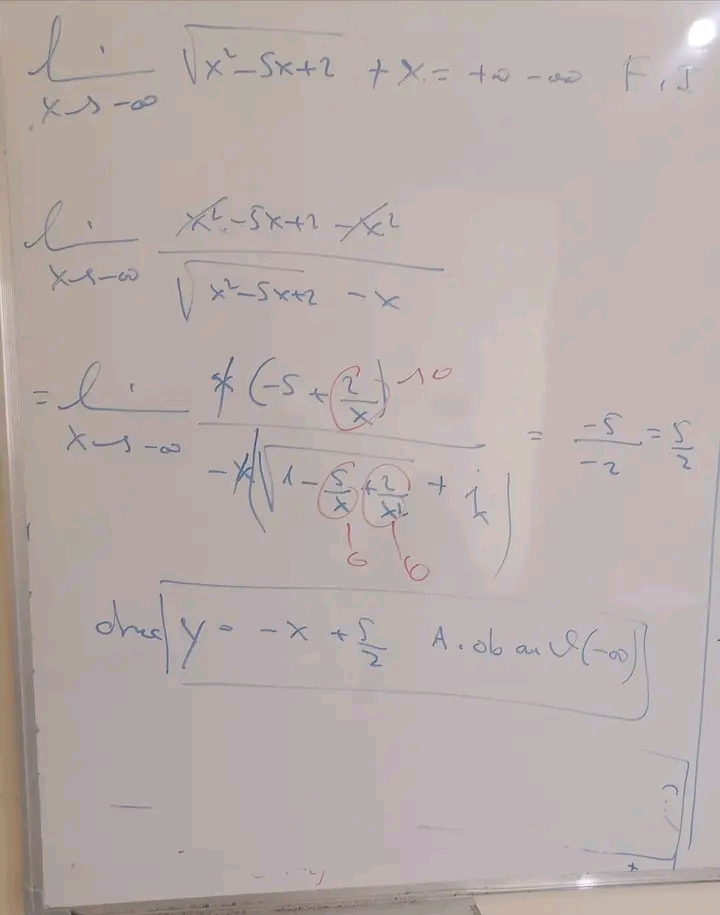 lim x→-∞ √(x²-5x+2) + x = +∞ -∞ F.I
lim x→-∞ (x²-5x+2-x²)/(√(x²-5x+2) - x)
= lim x→-∞ x(-5 + 2/x)→0 / -x(√(1 - 5/x + 2/x²) + 1) = -5/-2 = 5/2
0 0
donc y = -x + 5/2 A.ob au V(-∞)